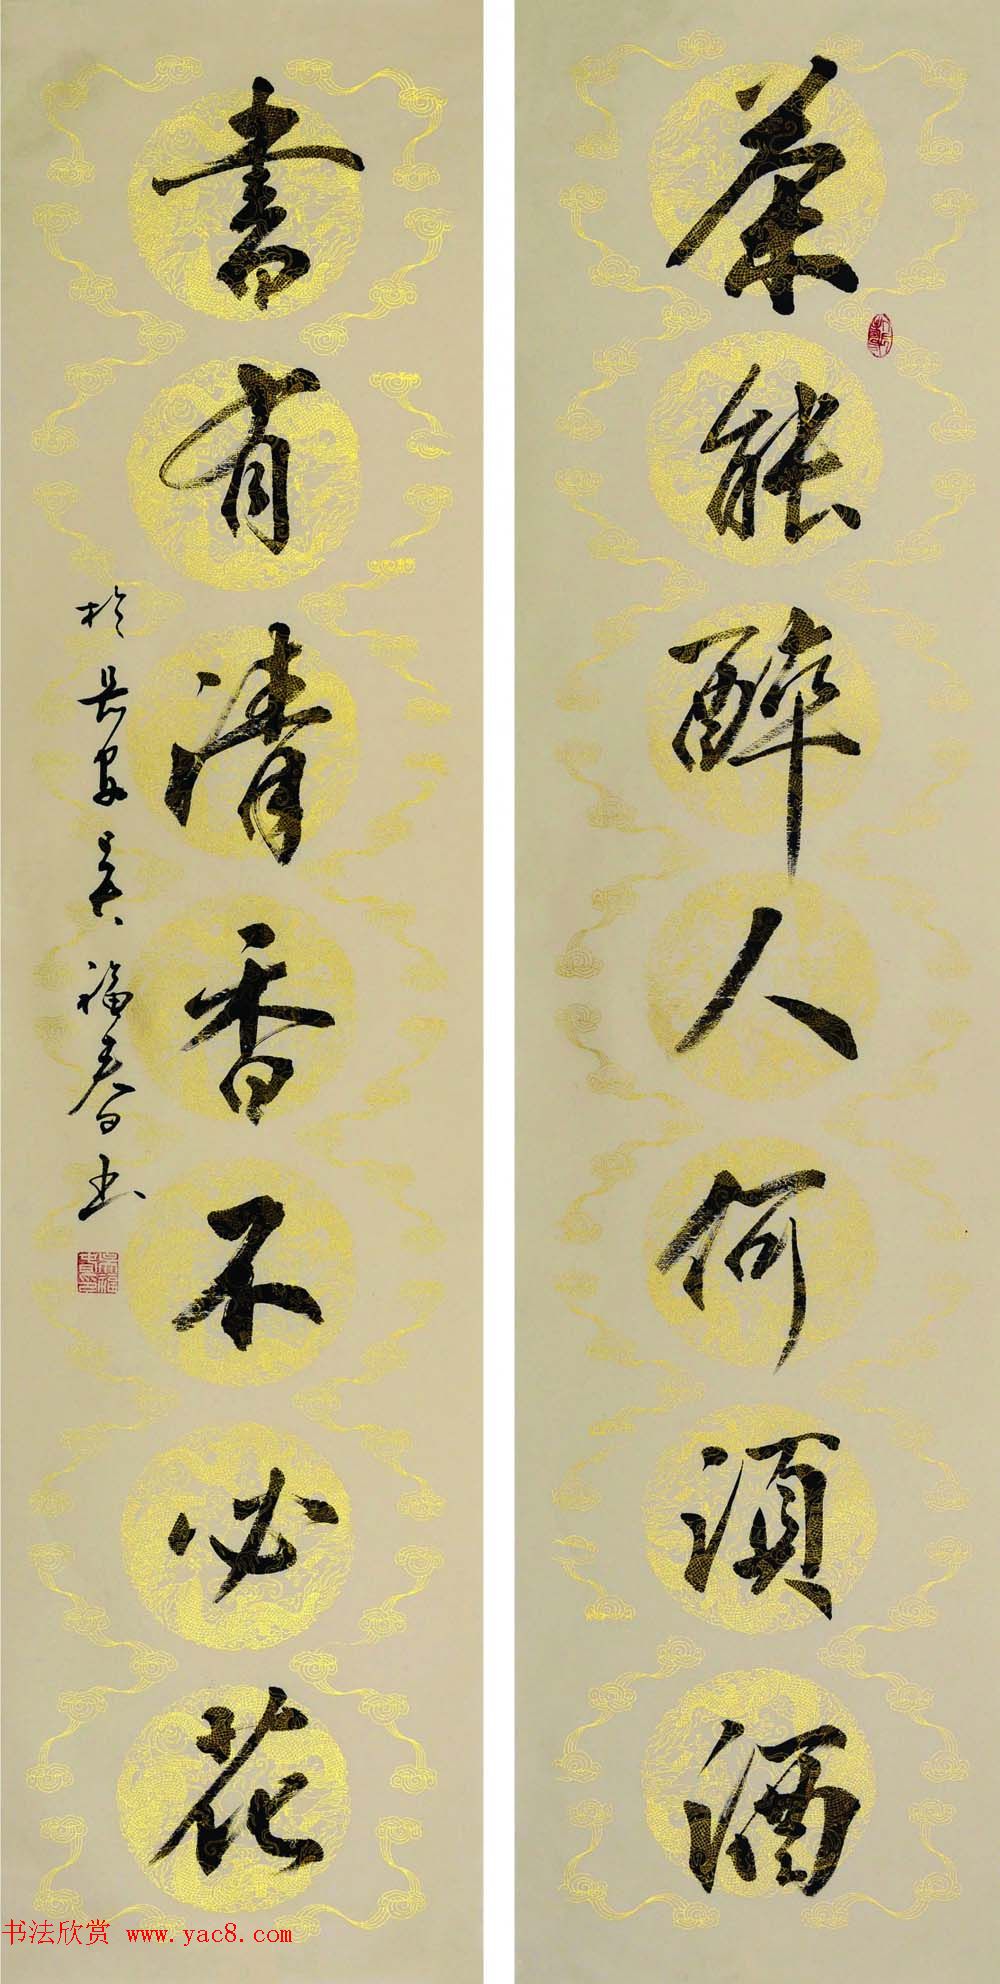 茶能醉人何須酒
書有清香不必花
於長安吳福春書
书法欣赏 www.yac8.com